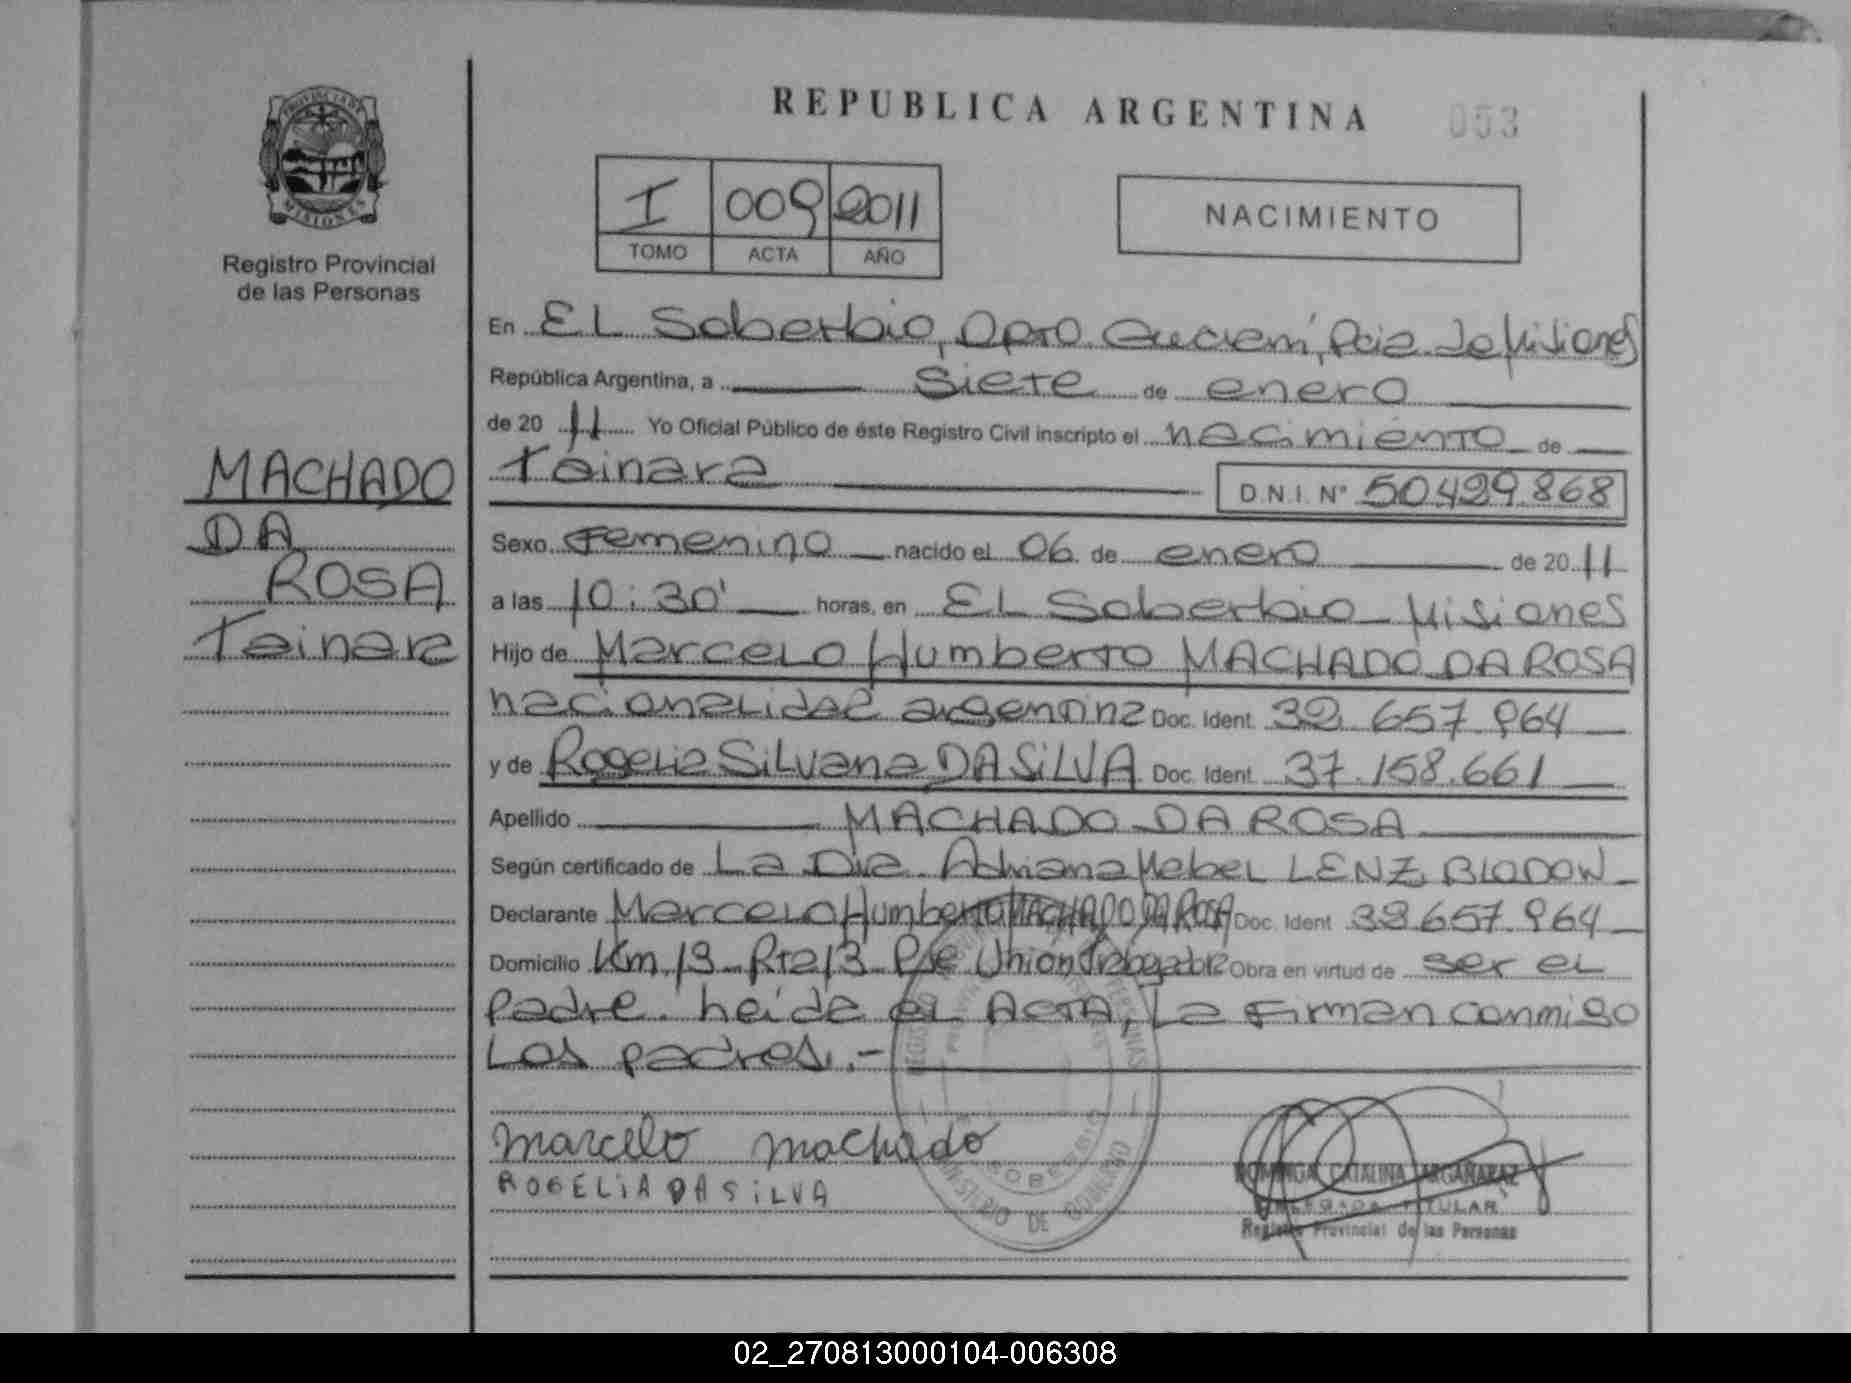 REPUBLICA ARGENTINA
053
PROVINCIA DE MISIONES
Registro Provincial
de las Personas
I 009 2011
TOMO ACTA AÑO
NACIMIENTO
En EL Soberbio, Dpto Guaraní, Pcia de Misiones
República Argentina, a siete de enero
de 20 11 Yo Oficial Público de éste Registro Civil inscripto el nacimiento de
Tainara D.N.I. Nº 50.429.868
MACHADO
DA
ROSA
Tainara
Sexo Femenino nacido el 06 de enero de 20 11
a las 10:30' horas, en EL Soberbio Misiones
Hijo de Marcelo Humberto MACHADO DA ROSA
nacionalidad argentina Doc. Ident. 657.964
y de Rogelia Silvana DA SILVA Doc. Ident. 37.158.661
Apellido MACHADO DA ROSA
Según certificado de La Dra. Adriana Mabel LENZ BLODOW
Declarante Marcelo Humberto MACHADO DA ROSA Doc. Ident 657.964
Domicilio Km 13 Rta 13 Pje Union Obra en virtud de ser el
padre. leída el ACTA, La Firman conmigo
Los padres.-
marcelo machado
ROGELIA DA SILVA
SOBERBIO
MINISTERIO DE GOBIERNO
DOMINGA CATALINA ARGAÑARAZ
DELEGADA TITULAR
Registro Provincial de las Personas
02_270813000104-006308